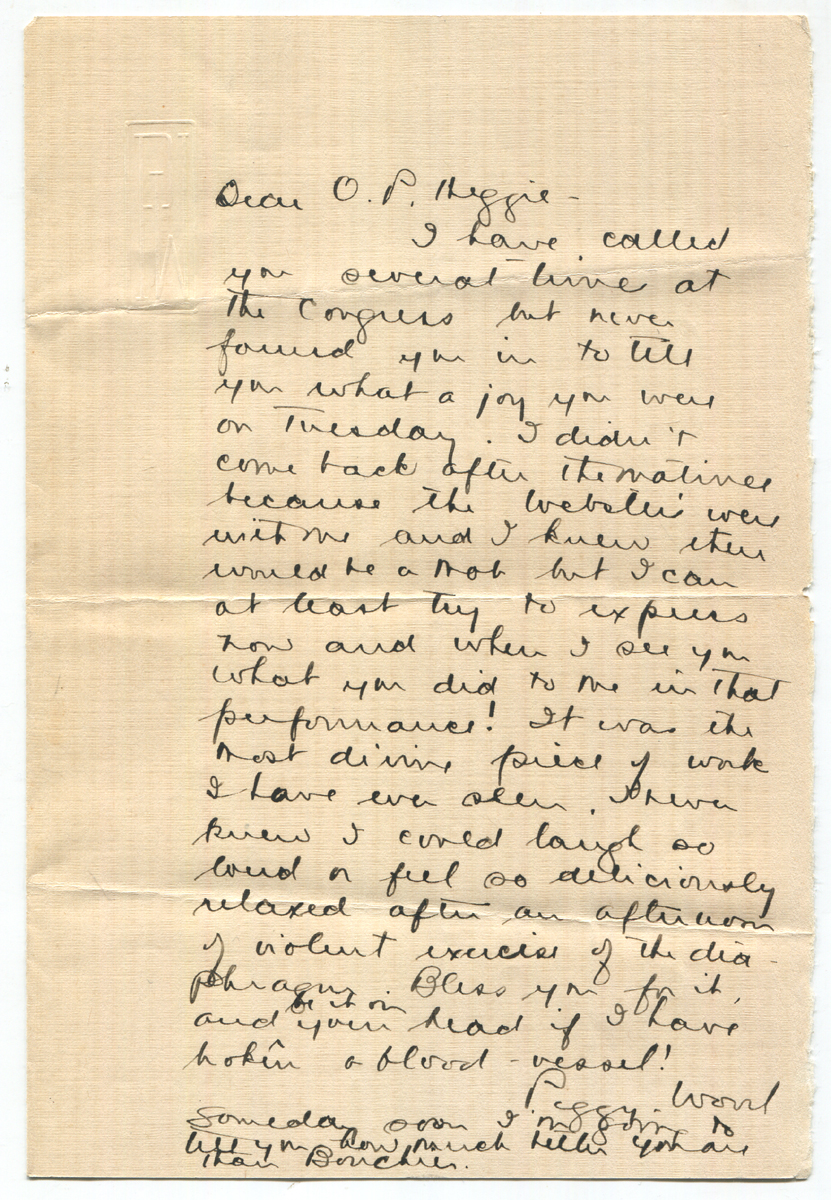 Dear O. P. Heggie -
I have called
you several time at
the Congress but never
found you in to tell
you what a joy you were
on Tuesday. I didn't
come back after the matinee
because the Websters were
with me and I knew there
would be a mob but I can
at least try to express
now and when I see you
what you did to me in that
performance! It was the
most divine piece of work
I have ever seen. I never
knew I could laugh so
loud or feel so deliciously
relaxed after an afternoon
of violent exercise of the dia-
phragm. Bless you for it,
and be it on your head if I have
broken a blood-vessel!
Peggy Wood
Someday soon I'm going to
tell you how much better you are
than Bourchier.